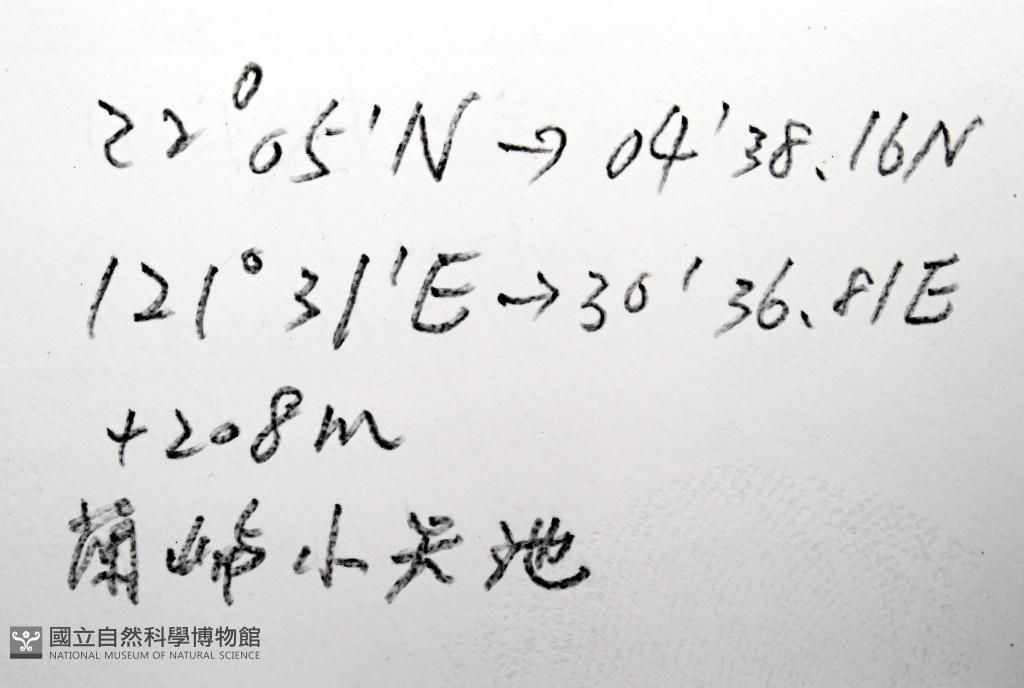 22°05'N → 04'38.16N
121°31'E → 30'36.81E
+208m
蘭嶼小天池
國立自然科學博物館
NATIONAL MUSEUM OF NATURAL SCIENCE